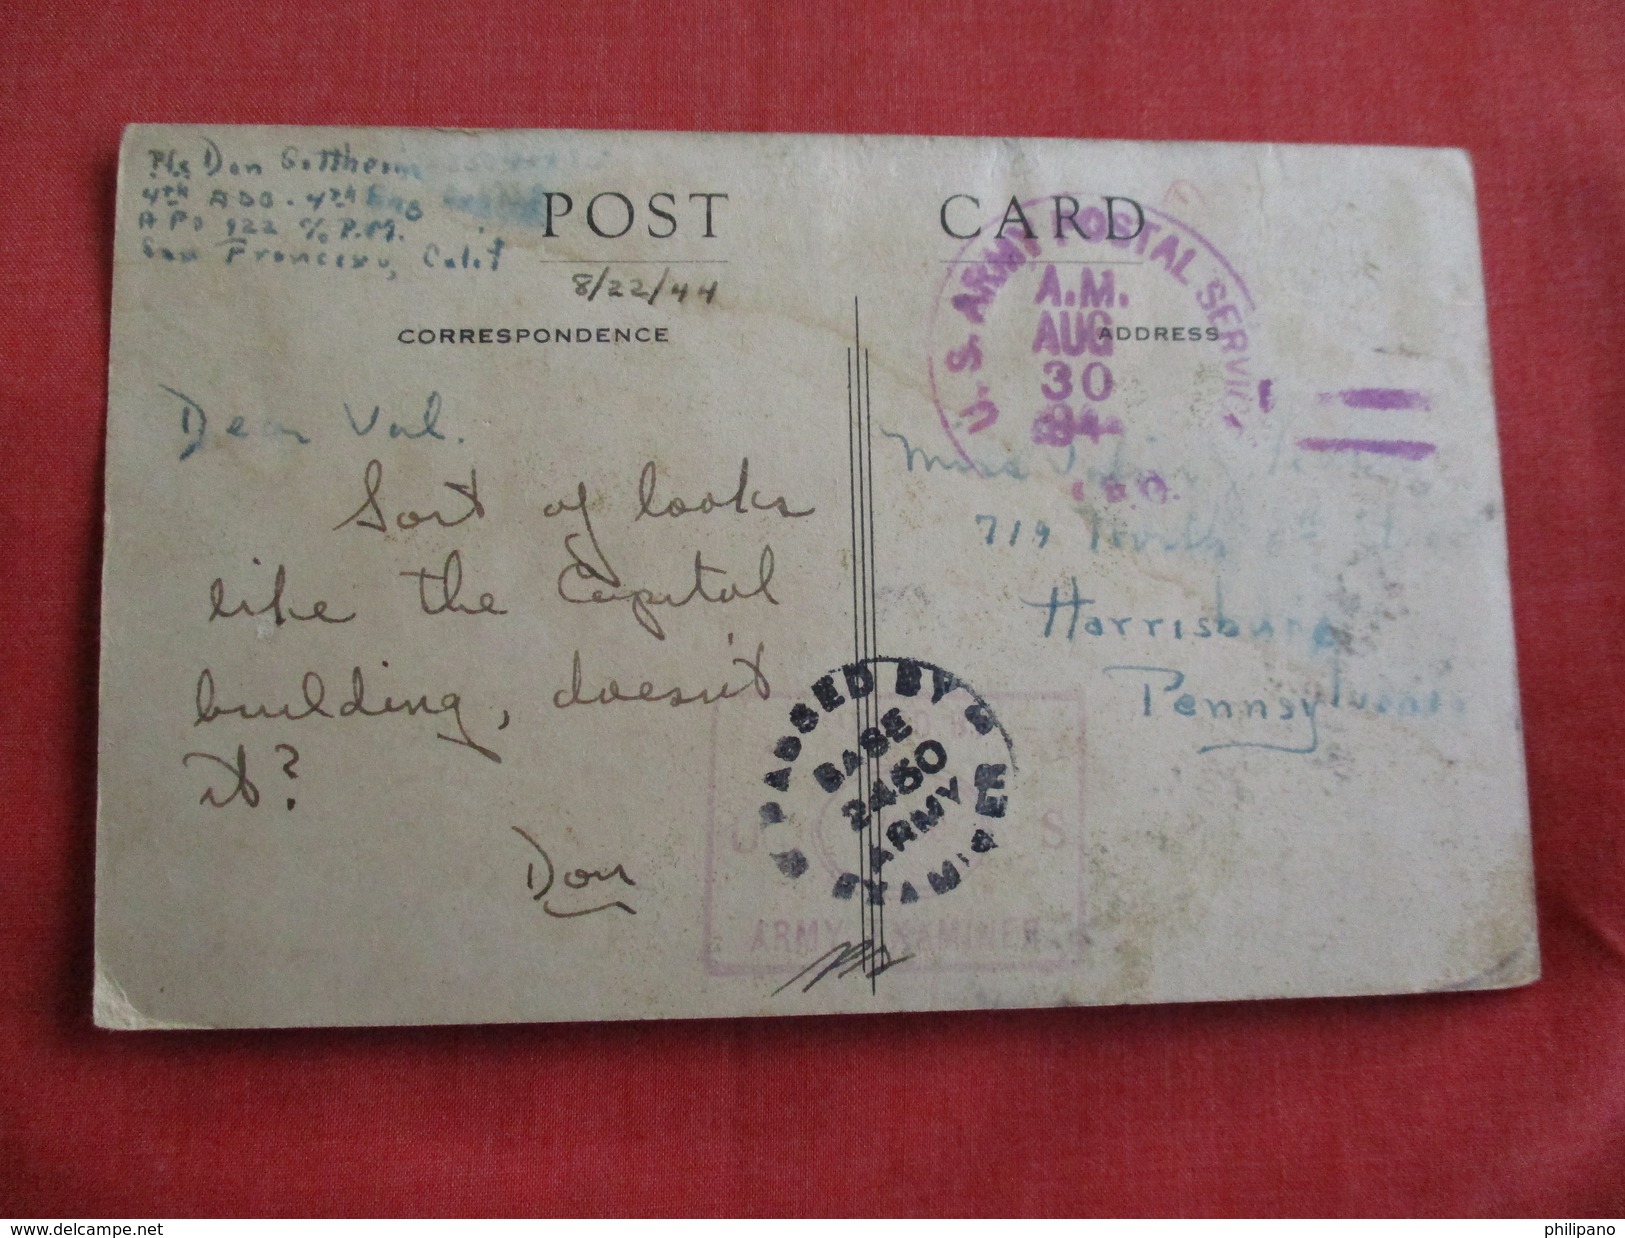 Pfc Don Gottheim
4th ADG. 4th
APO 922 c/o P.M.
San Francisco, Calif
POST CARD
8/22/44
CORRESPONDENCE
ADDRESS
U.S. ARMY POSTAL SERVICE
A.M.
AUG
30
Dear Val.
Sort of looks
like the Capitol
building, doesn't
it?
Don
Miss
719 North St
Harrisburg
Pennsylvania
PASSED BY
BASE
2450
ARMY
EXAMINER
U S
ARMY EXAMINER
www.delcampe.net
philipano